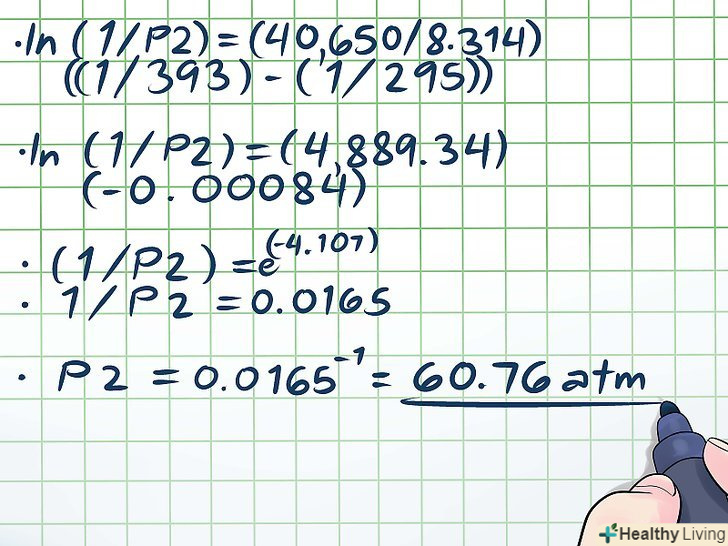 ·ln (1/P2) = (40,650/8.314)
((1/393) - (1/295))
·ln (1/P2) = (4,889.34)
(-0.00084)
· (1/P2) = e(-4.107)
· 1/P2 = 0.0165
· P2 = 0.0165-1 = 60.76 atm
Healthy Living